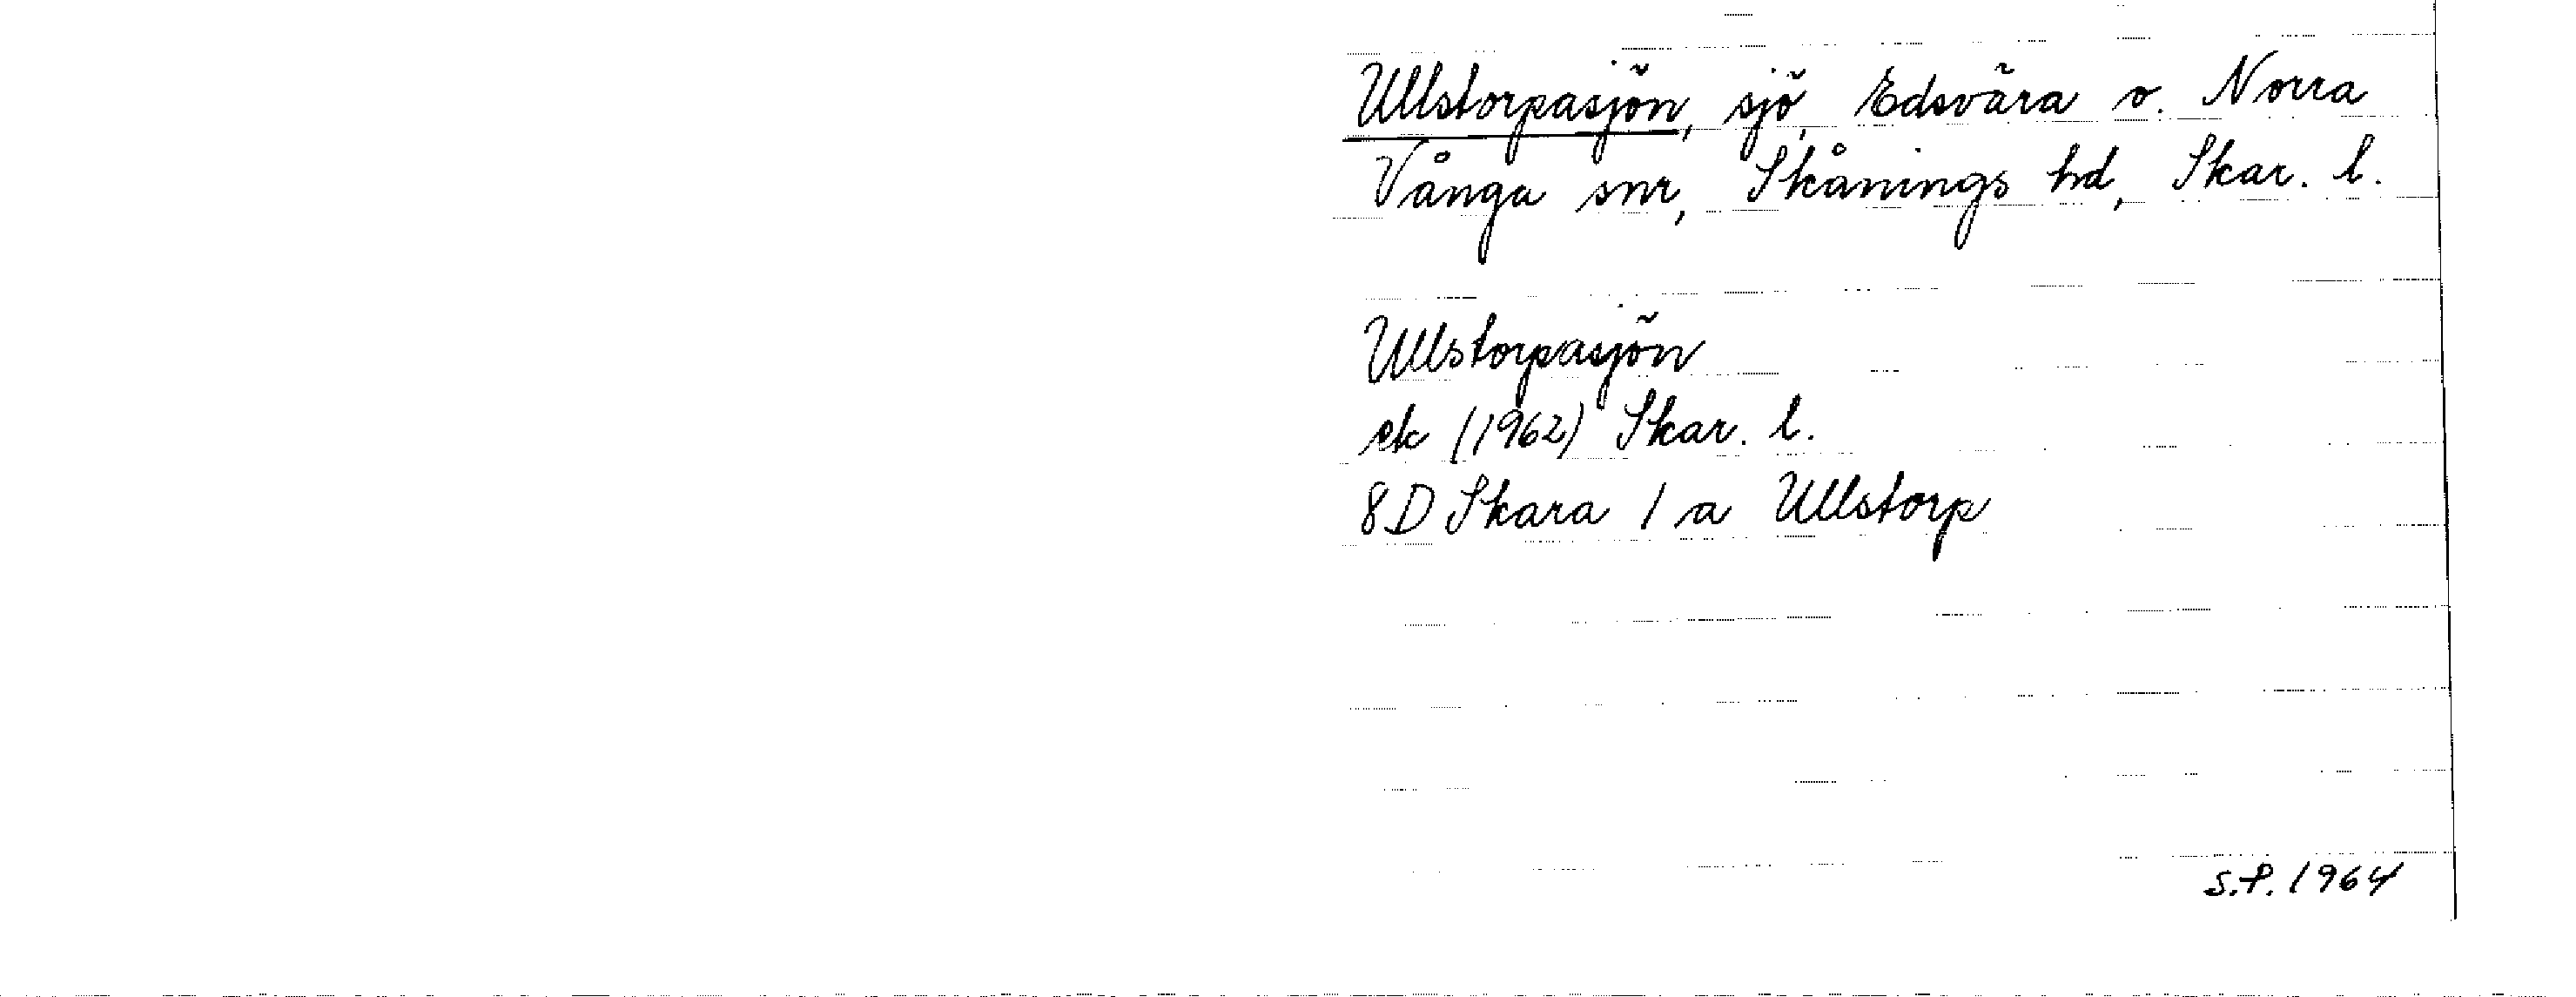 Ullstorpasjön, sjö, Edsvära o. Norra
Vånga snr, Skånings hd, Skar. l.
Ullstorpasjön
ek (1962) Skar. l.
8D Skara 1 a Ullstorp
S.P. 1964